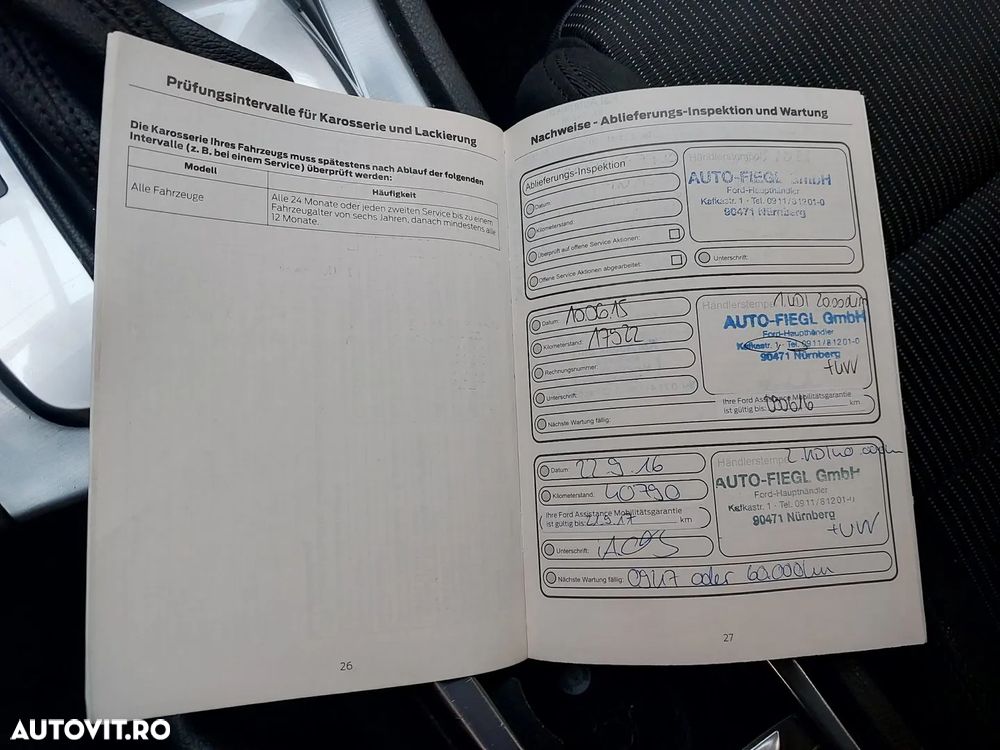 Prüfungsintervalle für Karosserie und Lackierung
Die Karosserie Ihres Fahrzeugs muss spätestens nach Ablauf der folgenden
Intervalle (z. B. bei einem Service) überprüft werden:
Modell
Häufigkeit
Alle Fahrzeuge
Alle 24 Monate oder jeden zweiten Service bis zu einem
Fahrzeugalter von sechs Jahren, danach mindestens alle
12 Monate.
26
Nachweise - Ablieferungs-Inspektion und Wartung
Ablieferungs-Inspektion
Datum:
Kilometerstand:
Überprüft auf offene Service Aktionen:
Offene Service Aktionen abgearbeitet:
Händlerstempel
AUTO-FIEGL GmbH
Ford-Haupthändler
Kafkastr. 1 - Tel. 0911/81201-0
90471 Nürnberg
Unterschrift:
Datum: 10.06.15
Kilometerstand: 17522
Rechnungsnummer:
Unterschrift:
Nächste Wartung fällig:
Händlerstempel 1. KDI 20.000km
AUTO-FIEGL GmbH
Ford-Haupthändler
Kafkastr. 1 - Tel. 0911/81201-0
90471 Nürnberg
+UW
Ihre Ford Assistance Mobilitätsgarantie
ist gültig bis: 090616 km
Datum: 22.9.16
Kilometerstand: 40790
Ihre Ford Assistance Mobilitätsgarantie
ist gültig bis: 21.9.17 km
Unterschrift:
Nächste Wartung fällig: 09.17 oder 60.000km
Händlerstempel 2. KDI 40.000km
AUTO-FIEGL GmbH
Ford-Haupthändler
Kafkastr. 1 - Tel. 0911/81201-0
90471 Nürnberg
+UW
27
AUTOVIT.RO